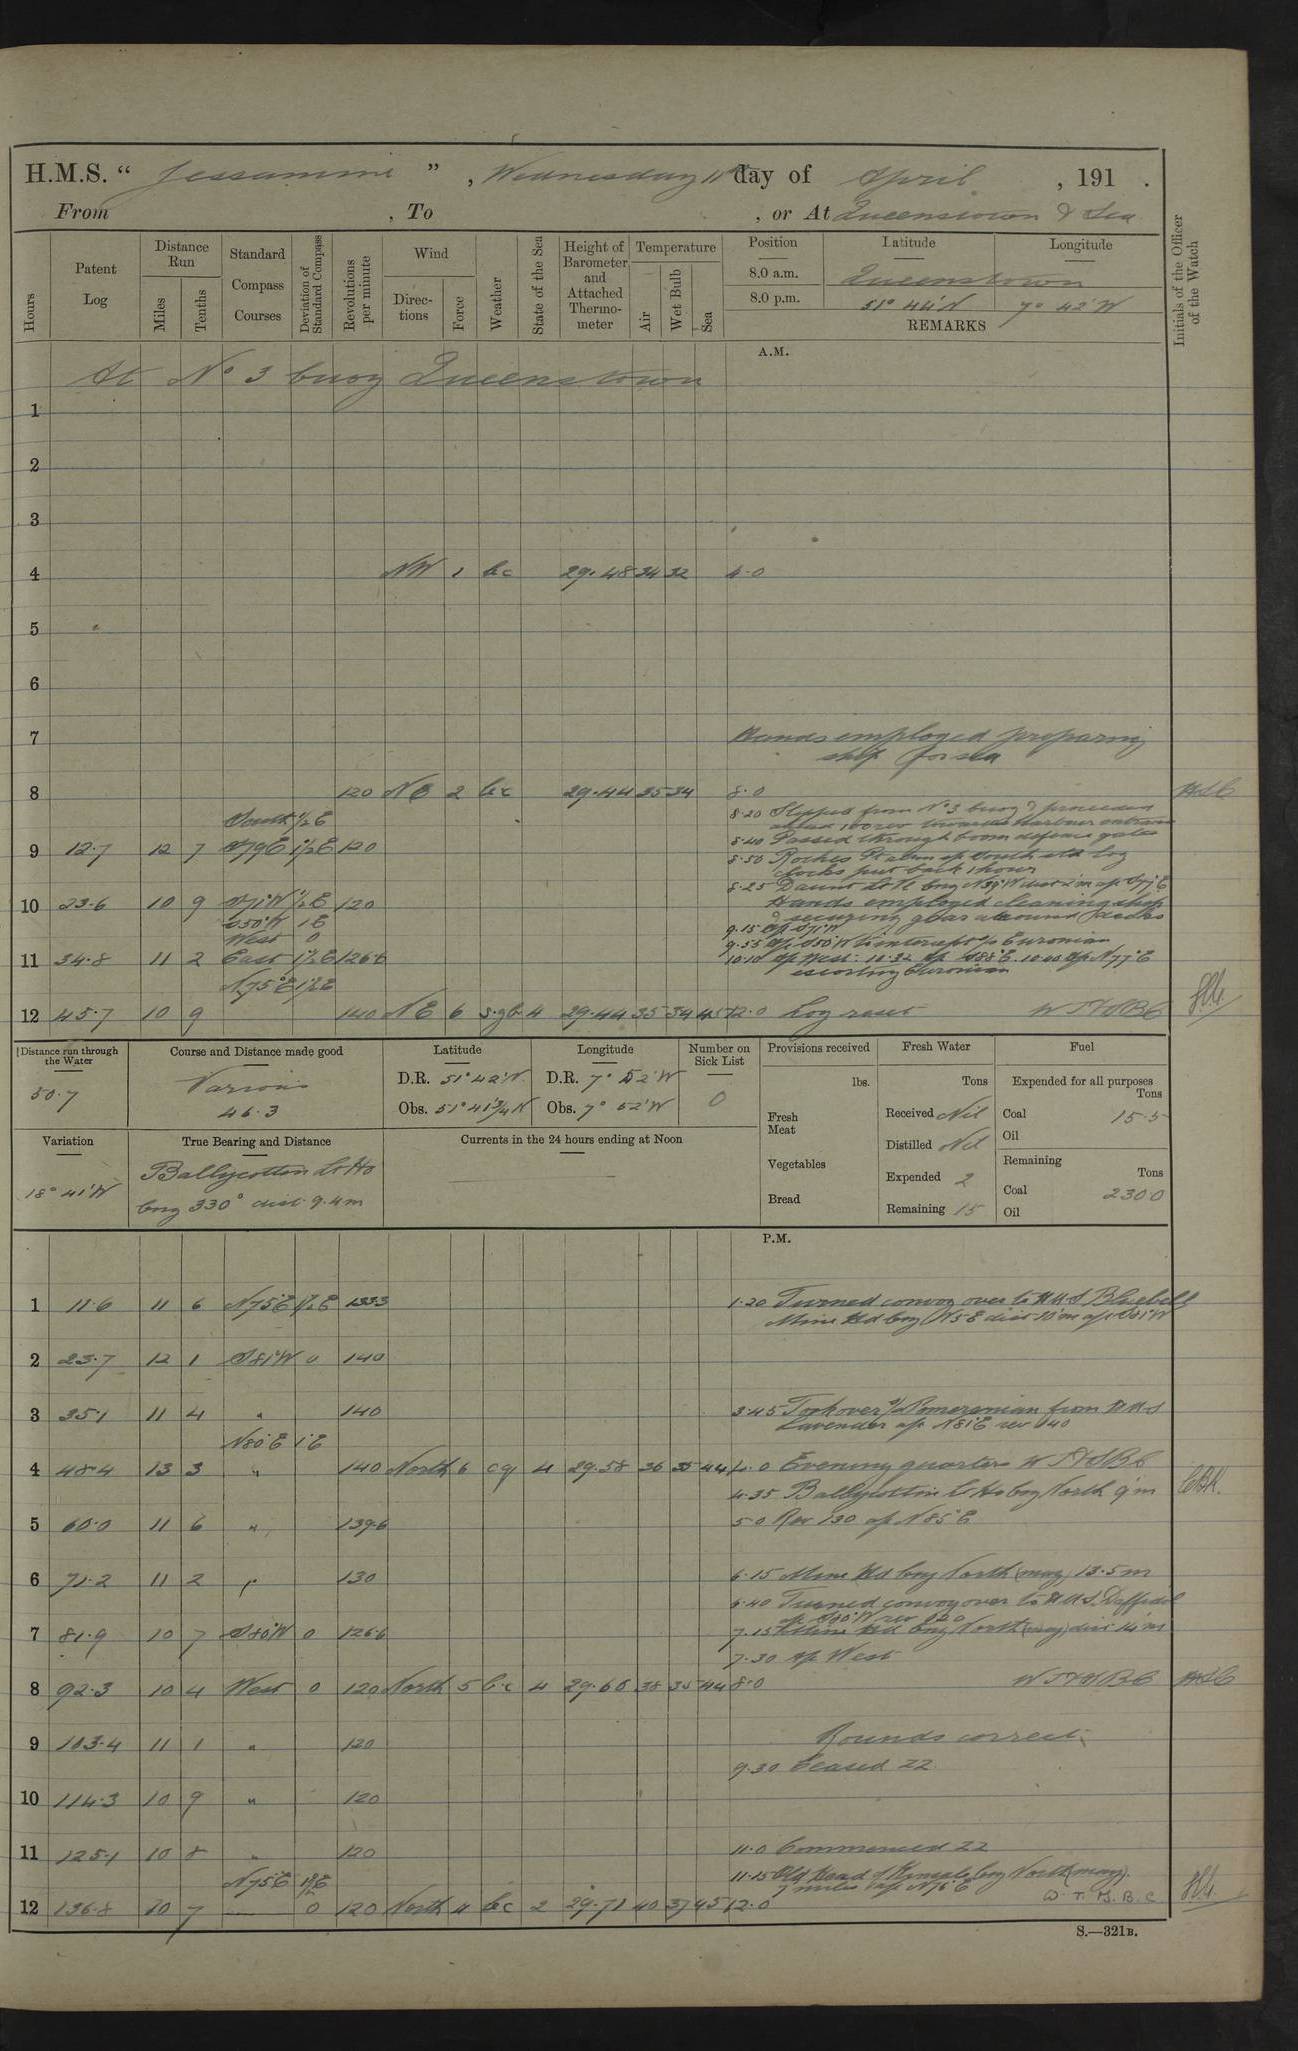 H.M.S. “ Jessamine ” , Wednesday 11th day of April , 191 .
From , To , or At Queenstown & Sea
Hours
Patent Log
Distance Run
Miles
Tenths
Standard Compass Courses
Deviation of Standard Compass
Revolutions per minute
Wind
Directions
Force
Weather
State of the Sea
Height of Barometer and Attached Thermo-meter
Temperature
Air
Wet Bulb
Sea
Position Latitude Longitude
8.0 a.m. Queenstown
8.0 p.m. 51° 44' N 7° 42' W
REMARKS
Initials of the Officer of the Watch
A.M.
At No 3 buoy Queenstown
1
2
3
4 NW 1 bc 29.48 34 32 4.0
5
6
7 Hands employed preparing
ship for sea
8 120 NE 2 bc 29.44 35 34 8.0
8.20 Slipped from No 3 buoy & proceeded
South 1/2 E ahead 100 rev towards harbour entrance
8.40 Passed through boom defence gates
9 12.7 12 7 S79E 1/2 E 120
8.50 Roches Pt abm a/c South std log
clocks put back 1 hour
8.25 Daunt Lt Vl brg N39°W dist 1'm a/c S79°E
10 23.6 10 9 S71°W 1/2 E 120 Hands employed cleaning ship
S50°W 1E & securing gear around decks
9.15 a/c S71°W
West 0 9.55 a/c S50°W to intercept s/s Euronian
11 34.8 11 2 East 1 1/2 E 126.6 10.10 a/c West. 10.32 a/c S88°E. 10.40 a/c N77°E
escorting Euronian
N75°E 1 1/2 E
12 45.7 10 9 140 NE 6 s.q.b. 4 29.44 35 34 45 12.0 Log reset W T H S B C
Distance run through the Water
50.7
Course and Distance made good
Various
46.3
Latitude
D.R. 51° 42' N
Obs. 51° 41 3/4 N
Longitude
D.R. 7° 52' W
Obs. 7° 52' W
Number on Sick List
0
Provisions received
lbs.
Fresh Meat
Vegetables
Bread
Fresh Water
Tons
Received Nil
Distilled Nil
Expended 2
Remaining 15
Fuel
Expended for all purposes
Tons
Coal 15.5
Oil
Remaining
Tons
Coal 230.0
Oil
Variation
18° 41' W
True Bearing and Distance
Ballycotton Lt Ho
brg 330° dist 9.4m
Currents in the 24 hours ending at Noon
P.M.
1 11.6 11 6 N75°E 1 1/2 E 133.3 1.20 Turned convoy over to H M S Bluebell
Mine Hd brg N5E dist 10'm a/c S81°W
2 23.7 12 1 S81°W 0 140
3 35.1 11 4 " 140 3.45 Took over s/s Pomeranian from H M S
Lavender a/c N81°E rev 140
N80°E 1°E
4 48.4 13 3 " 140 North 6 cq 4 29.58 36 35 44 4.0 Evening quarters W T H S B C
4.35 Ballycottin Lt Ho brg North 9'm
5 60.0 11 6 " 139.6 5.0 Rev 130 a/c N85°E
6 71.2 11 2 " 130 6.15 Mine Hd brg North (mag) 13.5m
6.40 Turned convoy over to H M S. Daffodil
a/c S80°W rev 120
7 81.9 10 7 S80°W 0 126.6 7.15 Mine Hd brg North (mag) dist 14'm
7.30 a/c West
8 92.3 10 4 West 0 120 North 5 b.c 4 29.66 38 35 44 8.0 W T H S B C
9 103.4 11 1 " 120 Rounds correct.
9.30 Ceased ZZ
10 114.3 10 9 " 120
11 125.1 10 8 " 120 11.0 Commenced ZZ
N75°E 11.15 Old Head of Kinsale brg North (mag).
7 miles a/c N75°E
12 136.8 10 7 0 120 North 4 bc 2 29.71 40 37 45 12.0 W. T. H. S. B. C
S.—321B.